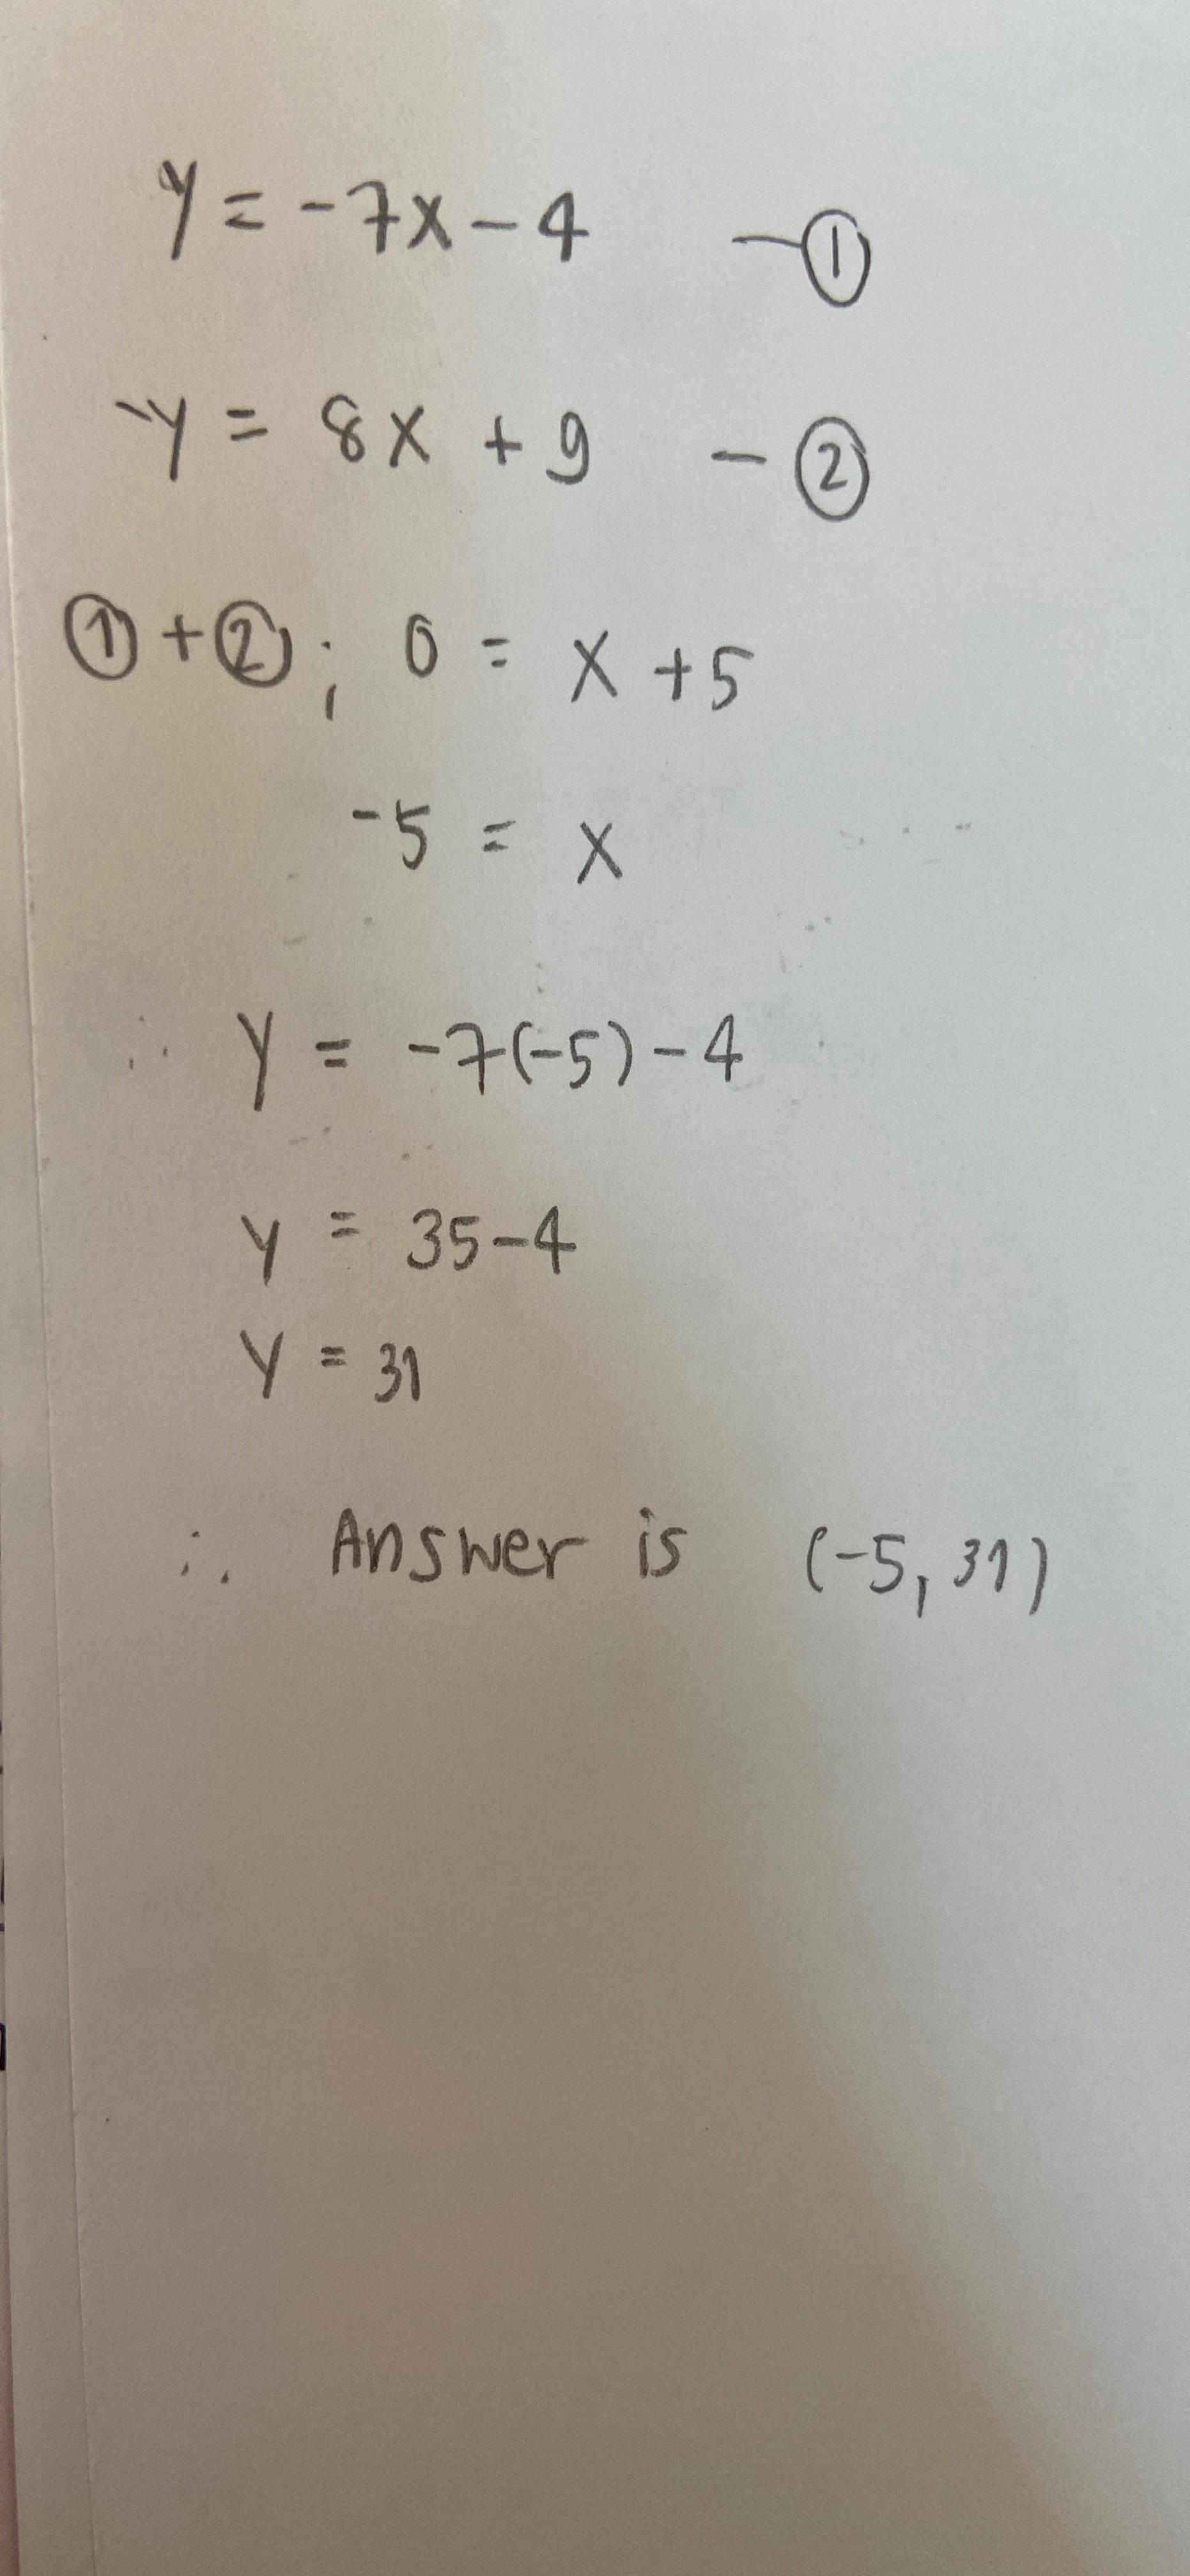 y = -7x - 4 - ①
-y = 8x + 9 - ②
① + ② ; 0 = x + 5
-5 = x
∴ y = -7(-5) - 4
y = 35 - 4
y = 31
∴ Answer is (-5, 31)